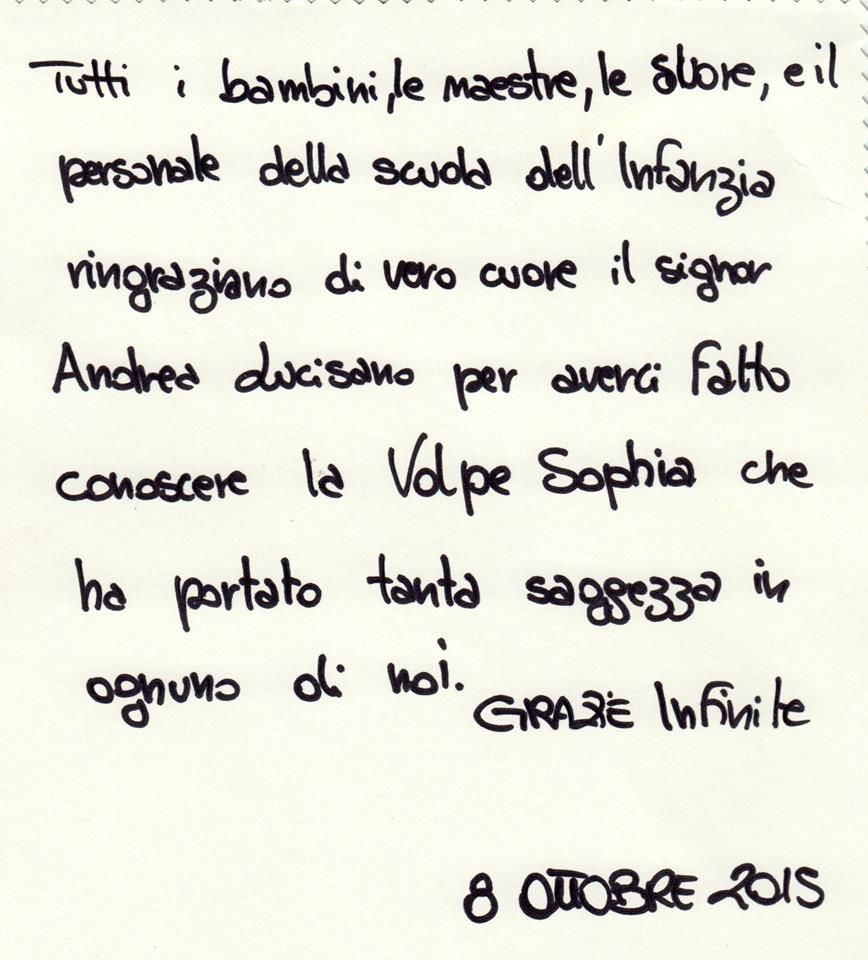 Tutti i bambini, le maestre, le suore, e il
personale della scuola dell'Infanzia
ringraziano di vero cuore il signor
Andrea Lucisano per averci fatto
conoscere la Volpe Sophia che
ha portato tanta saggezza in
ognuno di noi.
GRAZIE Infinite
8 OTTOBRE 2015